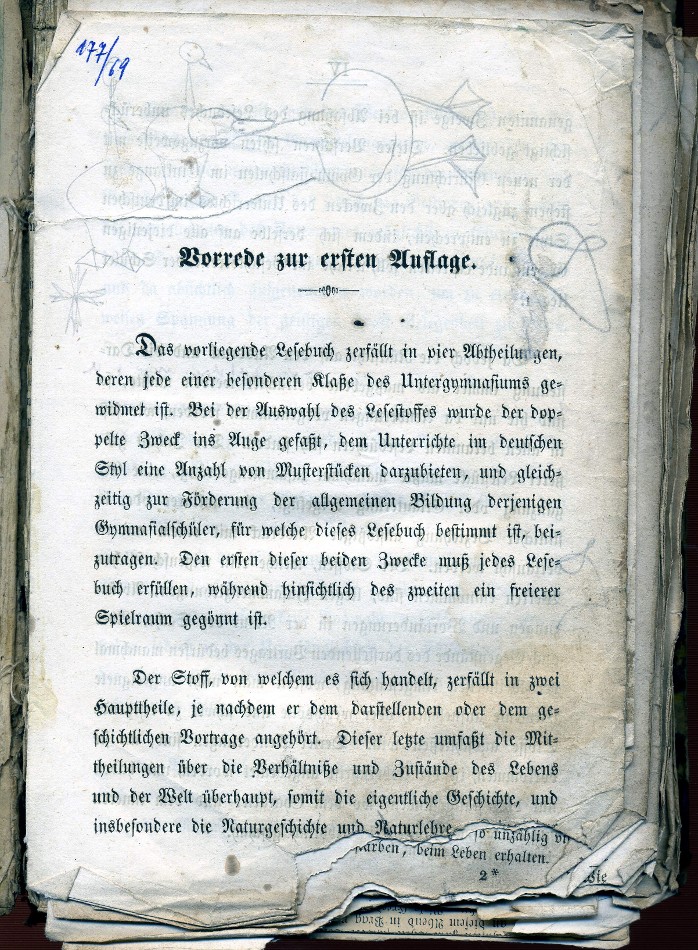 177/69
VI
Vorrede zur ersten Auflage.
Das vorliegende Lesebuch zerfällt in vier Abtheilungen,
deren jede einer besonderen Klaße des Untergymnasiums ge-
widmet ist. Bei der Auswahl des Lesestoffes wurde der dop-
pelte Zweck ins Auge gefaßt, dem Unterrichte im deutschen
Styl eine Anzahl von Musterstücken darzubieten, und gleich-
zeitig zur Förderung der allgemeinen Bildung derjenigen
Gymnasialschüler, für welche dieses Lesebuch bestimmt ist, bei-
zutragen. Den ersten dieser beiden Zwecke muß jedes Lese-
buch erfüllen, während hinsichtlich des zweiten ein freierer
Spielraum gegönnt ist.
Der Stoff, von welchem es sich handelt, zerfällt in zwei
Haupttheile, je nachdem er dem darstellenden oder dem ge-
schichtlichen Vortrage angehört. Dieser letzte umfaßt die Mit-
theilungen über die Verhältniße und Zustände des Lebens
und der Welt überhaupt, somit die eigentliche Geschichte, und
insbesondere die Naturgeschichte und Naturlehre
so unzählig
beim Leben erhalten.
2*